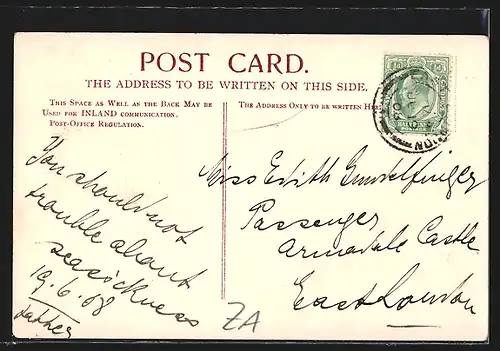 POST CARD.
THE ADDRESS TO BE WRITTEN ON THIS SIDE.
THIS SPACE AS WELL AS THE BACK MAY BE
USED FOR INLAND COMMUNICATION.
POST-OFFICE REGULATION.
THE ADDRESS ONLY TO BE WRITTEN HERE
You should not
trouble about
seasickness
19.6.08
Father
Miss Edith Gundelfinger
Passenger
Armadale Castle
East London
ZA
HALFPENNY